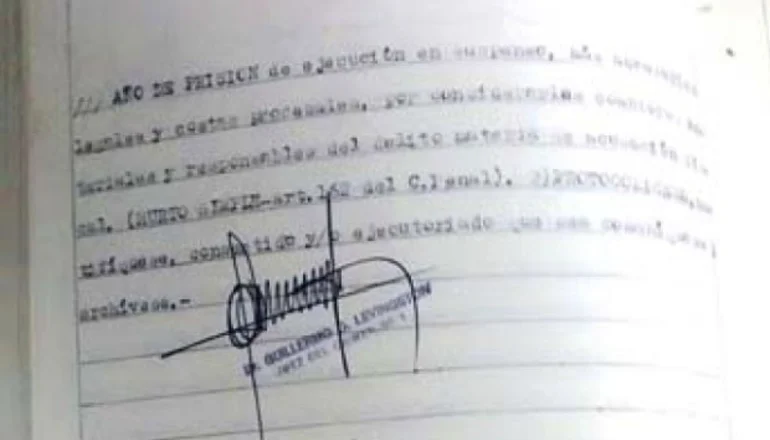 /// AÑO DE PRISION de ejecución en suspenso, más accesorias
legales y costas procesales, por considerarlos coautores ma-
teriales y responsables del delito materia de acusación fis-
cal. (HURTO SIMPLE-art. 162 del C. Penal). PROTOCOLICESE, no-
tifíquese, consentido y/o ejecutoriado que sea comuníquese y
archívese.-
DR. GUILLERMO A. LEVINGSTON
JUEZ DEL CRIMEN Nº 1